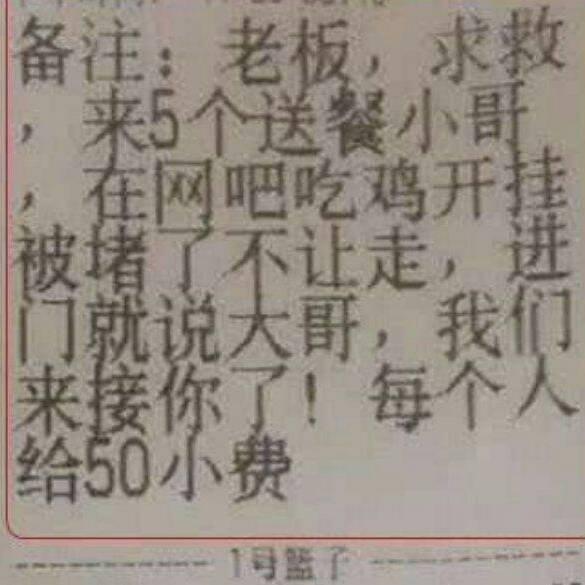 备注：老板，求救
，来5个送餐小哥
，在网吧吃鸡开挂
被堵了不让走，进
门就说大哥，我们
来接你了！每个人
给50小费
1号篮子